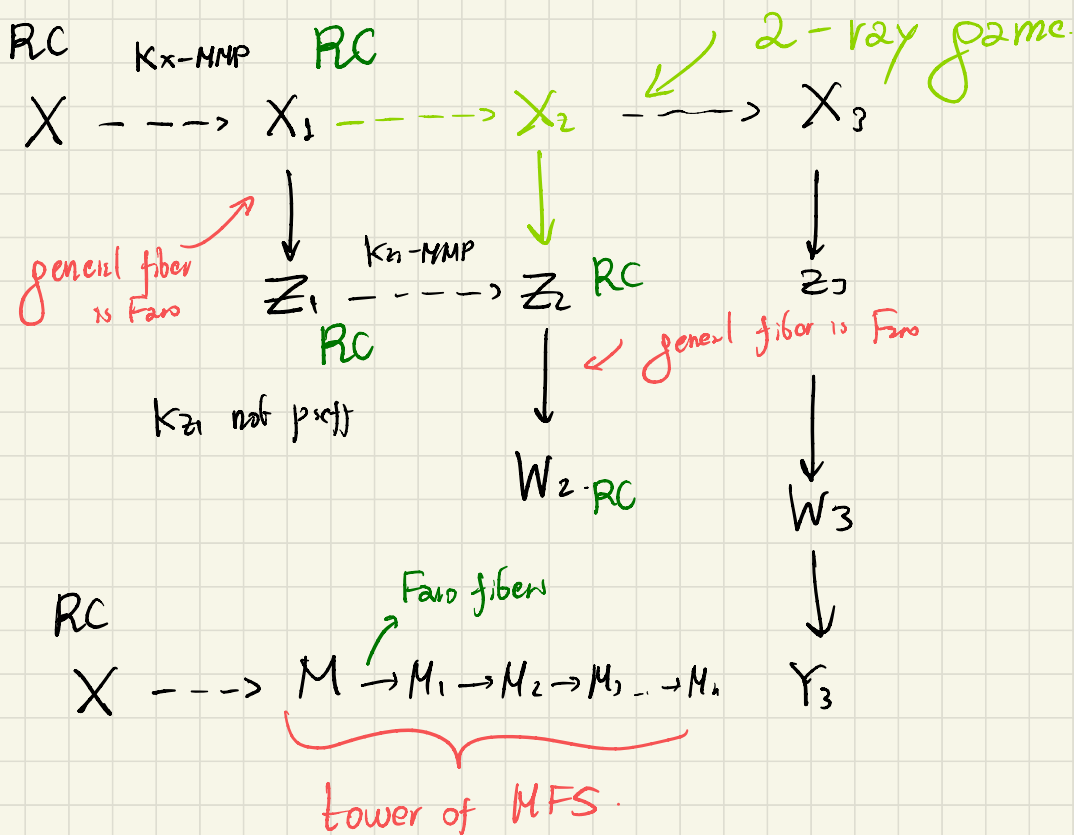 RC Kx-MMP RC 2-ray game.
X ----> X₁ -----> X₂ ---> X₃
general fiber is Fano
K_{Z₁}-MMP
Z₁ ----> Z₂ RC Z₃
RC
general fiber is Fano
K_{Z₁} not pseff
W₂ RC
W₃
Fano fibers
RC
X ---> M → M₁ → M₂ → M₃ ... → Mₙ Y₃
tower of MFS.